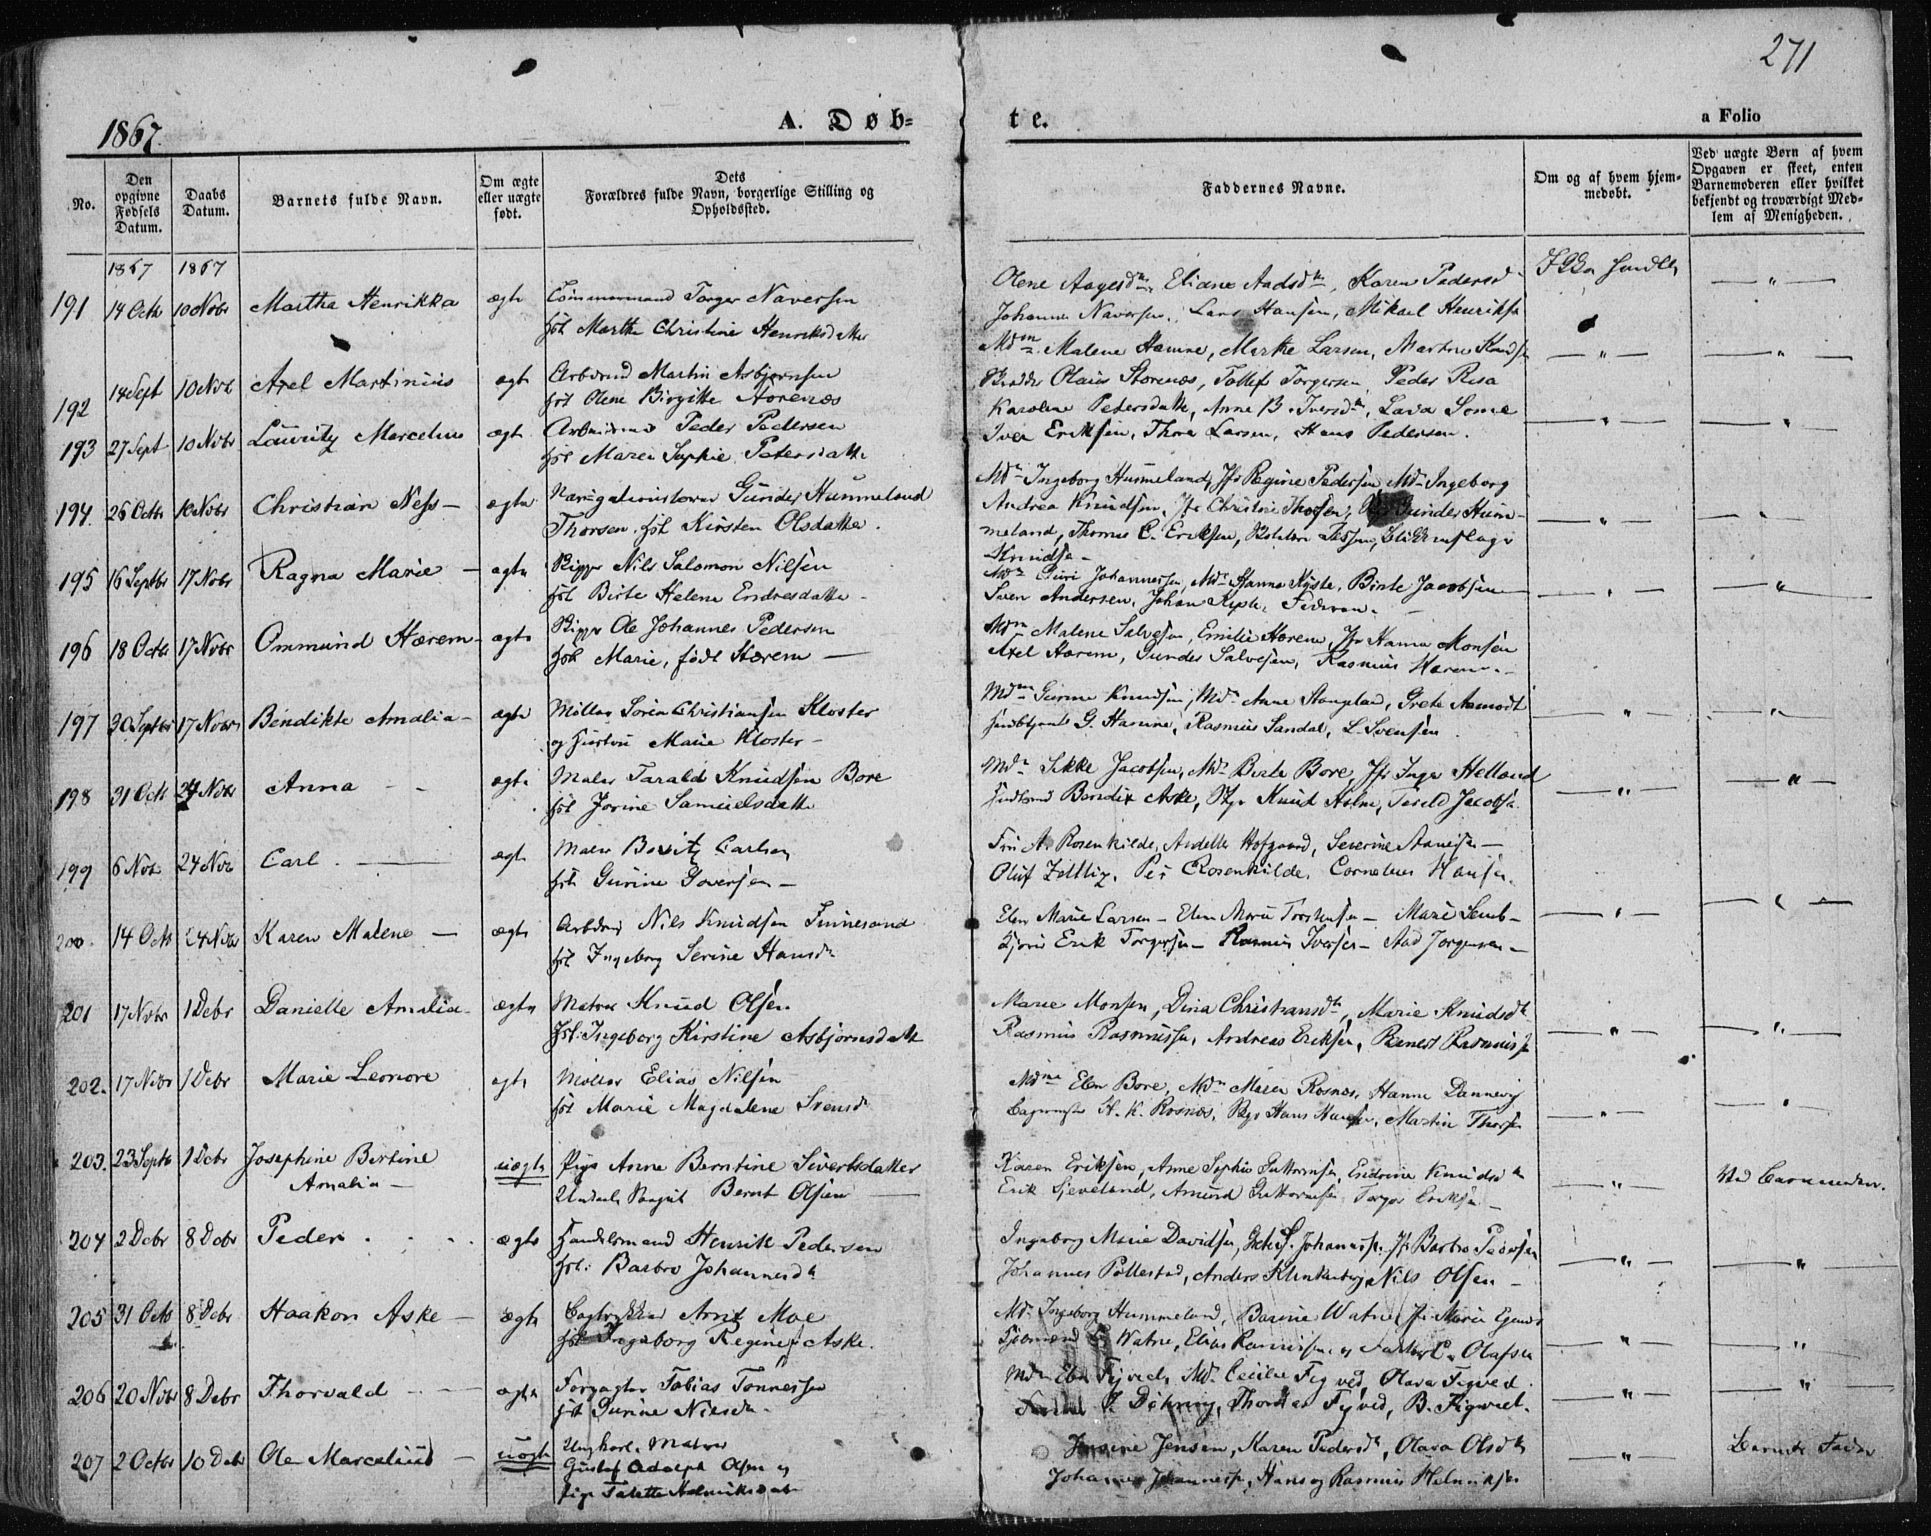 271
1867.
A. Døb-
te.
a Folio
No.
Den opgivne Fødsels Datum.
Daabs Datum.
Barnets fulde Navn.
Om ægte eller uægte født.
Dets Forældres fulde Navn, borgerlige Stilling og Opholdssted.
Faddernes Navne.
Om og af hvem hjemmedøbt.
Ved uægte Børn af hvem Opgaven er skeet, enten Barnemoderen eller hvilket bekjendt og troværdigt Medlem af Menigheden.
1867 1867
191 14 Octb 10 Novbr Martha Henrikka ægte Tømmermand Torger Naversen
hst Marthe Christine Henriksdatter
Olene Aagesd., Eliane Aadsd., Karen Pedersd
Johannes Naversen, Lars Hansen, Mikael Henriksen
192 14 Sept 10 Novb Axel Martinius ægte Arbmnd Martin Asbjørnsen
hst Olene Birgitte Storenæs
Mdm Malene Hamre, Marthe Larsen, Martine Knuds
Olaus Storenæs, Tollef Torgersen, Peder Risa
193 27 Sept 10 Novbr Lauritz Marcelius ægte Arbmnd Peder Pedersen
hst Maren Sophie Petersdatte
Karolene Petersdatte, Anne B. Iversd., Lava Some
Iver Eriksen, Thore Larsen, Hans Pedersen.
194. 26 Octbr 10 Novbr Christian Ness – ægte Navigationslærer Gunder Hummeland
Thorsen hst Kirsten Olsdatter.
Md. Ingeborg Hummeland, Jfr Regine Pedersen, Md. Ingeborg
Andrea Knudsen, Jfr Christine Thorsen, Gunder Hum-
meland, Thomas C. Eriksen,
Knudsen –
195 16 Septbr 17 Novbr Ragna Marie – ægte Skipper Nils Salomon Nilsen
hst Birte Helene Endresdatte –
Md. Guri Johannessen, Md. Hanna Kyste, Birte Jacobsen
Sven Andersen, Johan
196 18 Octb 17 Novbr Ommund Hærem – ægte Skipper Ole Johannes Pedersen
hst Marie, født Hærem –
Mdm Malene Salvesen, Emilie Hærem, Jfr Hanna Monsen
Axel Hærem, Gunder Salvesen, Rasmus Hærem –
197 30 Septbr 17 Novbr Bendikte Amalia – ægte Møller Søren Christiansen Kloster
og Hustru Marie Kloster –
Mdm Gurine Knudsen, Md. Anne Stangeland, Grete Aamodt
G. Hamre, Rasmus Sandal, L. Svensen.
198 31 Octb 24 Novbr Anna – – ægte Maler Tarald Knudsen Bore
hst Jorine Samuelsdatte
Md. Sikke Jacobsen, Md. Berte Bore, Jfr Inger Helland
Bendix Aske, Knud Holm, Tarald Jacobs.
199 6 Novb 24 Novb Carl. – ægte Maler Carlsen
hst Gurine Goversen –
Fru A. Rosenkilde, Ardelle Hofgaard, Severine Aanesen –
Oluf Zetlitz, Per Rosenkilde, Cornelius Hansen.
200. 14 Octb 24 Novbr Karen Malene – ægte Arbdsm Nils Knudsen Finnesand
hst Ingeborg Serine Hansd.
Elen Marie Larsen – Elen Marie – Marie Lemb –
Erik Torgersen – Rasmus Iversen – Aad Jørgensen –
201 17 Novbr 1 Debr Danielle Amalia – ægte Matros Knud Olsen
hst. Ingeborg Kirstine Asbjørnsdatte
Marie Monsen, Dina Christiansd., Marie Knudsd.
Rasmus Rasmussen, Andreas Eriksen, Rasmussen
202. 17 Novbr 1 Debr Marie Leonore ægte Møller Elias Nilsen
hst Marie Magdalene Svensd.
Mdme Elen Bore, Md. Maren Rosnæs, Hanne Dannevig
H. K. Rosnæs, Hans Hansen, Martin Thorsen
203. 23 Septb 1 Debr Josephine Bertine uægte Pige Anne Berntine Sivertsdatter
Amalia – Bernt Olsen –
Karen Eriksen, Anne Sophie Guttormsen, Endrine Knudsd.
Erik Sjeveland, Amund Guttormsen, Torger Eriksen –
Ved Barnemoder.
204 2 Debr 8 Debr Peder . . . ægte Handelsmand Henrik Pedersen
hst. Barbro Johannesd.
Ingeborg Marie Davidsen, S. Johannessen, Jfr Barbro
Johannes Pollestad, Anders Klinkenberg, Nils Olsen –
205 31 Octb 8 Debr Haakon Aske – ægte Arnt Moe
hst Ingeborg Regine Aske.
Md. Ingeborg Hummeland, Watne, Jfr Marie
Watne, Elias Rasmussen og C. Olafsen
206 20 Novbr 8 Debr Thorvald – – ægte Forpagter Tobias Tønnessen
hst Gurine Nilsd. –
Md. Elen Figved, Md. Cecilie Figved, Olava Figved.
J. Døhring, Thomas Figved, B. Figved.
207 2 Octbr 10 Debr Ole Marcelius – uægte Ungkarl. Matros
Gustaf Adolph Olsen og
Pige Talette Helmiksdatte
Jensine Jensen, Karen Pedersd., Olava Olsd.
Johannes Johannesen, Hans og Rasmus Helmiksen
Barnets Fader